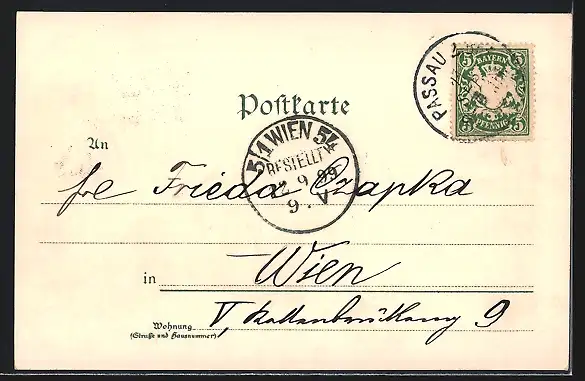 PASSAU
BAYERN
5 5
5 PFENNIG 5
Postkarte
5/1 WIEN 54
BESTELLT
2. 9. 99
9. V
An
Frl Frieda Czapka
in Wien
Wohnung
(Straße und Hausnummer)
V, 9